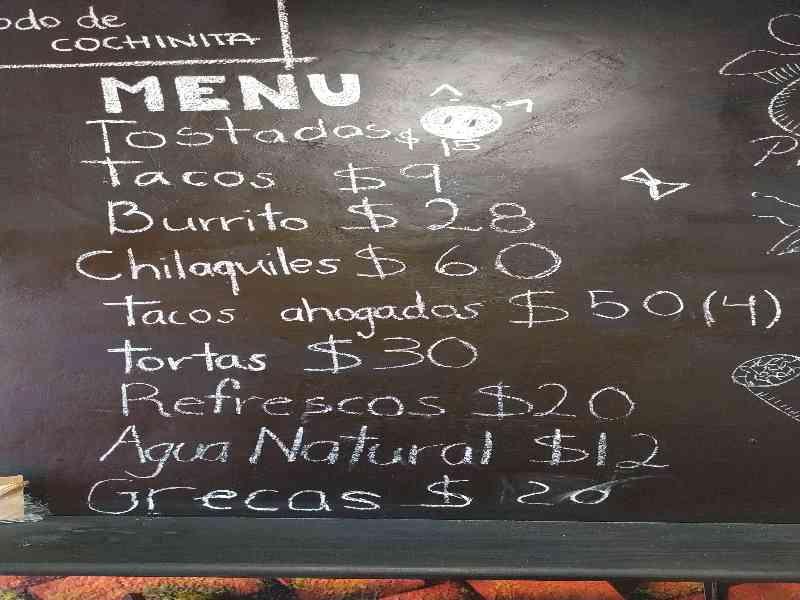 odo de
COCHINITA
MENU
Tostadas $ 15
Tacos $9
Burrito $28
Chilaquiles $60
Tacos ahogadas $50 (4)
Tortas $30
Refrescos $20
Agua Natural $12
Grecas $20